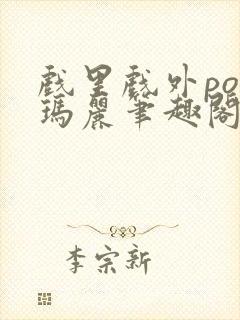 戲里戲外po
瑪麗筆趣閣
李宗新